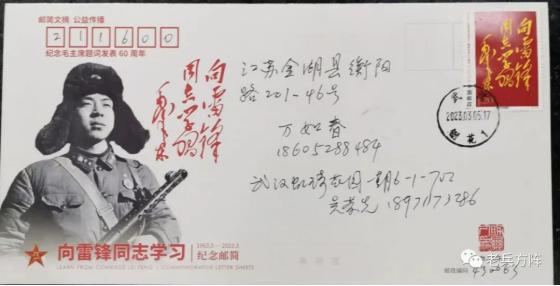 邮简文摘 公益传播
211600
纪念毛主席题词发表60周年
向雷锋
同志学习
毛泽东
江苏金湖县衡阳
路201-46号
万如春
18605288484
武汉虹琦花园一期6-1-702
吴崇光
向雷锋
同志学习
毛泽东
中国邮政
2023.03.05.17
1963.3—2023.3
向雷锋同志学习
纪念邮简
LEARN FROM COMRADE LEI FENG | COMMEMORATIVE LETTER SHEETS
邮政编码
老兵方阵